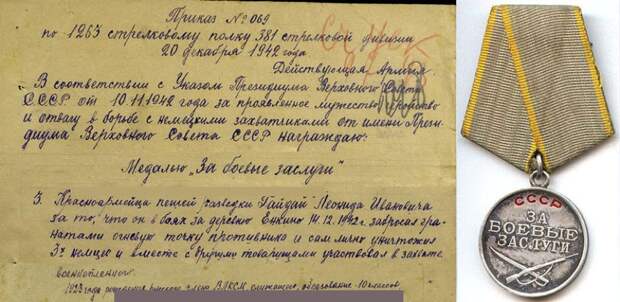 Приказ № 069
по 1263 стрелковому полку 381 стрелковой дивизии
20 декабря 1942 года
Действующая Армия
В соответствии с Указом Президиума Верховного Совета
СССР от 10.11.1942 года за проявленное мужество геройство
и отвагу в борьбе с немецкими захватчиками от имени Прези-
диума Верховного Совета СССР награждаю:
Медалью "За боевые заслуги"
3. Красноармейца пешей разведки Гайдай Леонида Ивановича
за то, что он в боях за деревню Енкино 14.12.1942г. забросал гра-
натами огневую точку противника и сам лично уничтожил
3х немцев и вместе с другими товарищами участвовал в захвате
военнопленного.
1923 года рождения члена ВЛКСМ, служащий, образование 10 классов
СССР
ЗА
БОЕВЫЕ
ЗАСЛУГИ